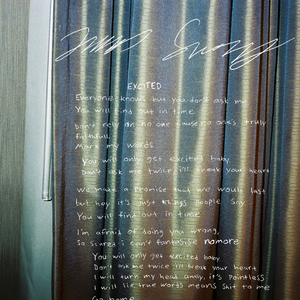 EXCITED
Everyone knows but you don't ask me
You will find out in time
Don't rely on no one cause no one's truly
faithful.
Mark my words
You will only get excited baby
Don't ask me twice i'll break your heart
We made a promise that we would last
but hey it's just things people say
You will find out in time
I'm afraid of doing you wrong,
So scared i can't fantasise nomore
You will only get excited baby
Don't ask me twice i'll break your heart
I will turn my head away, it's pointless
I will lie true words means shit to me
Go home